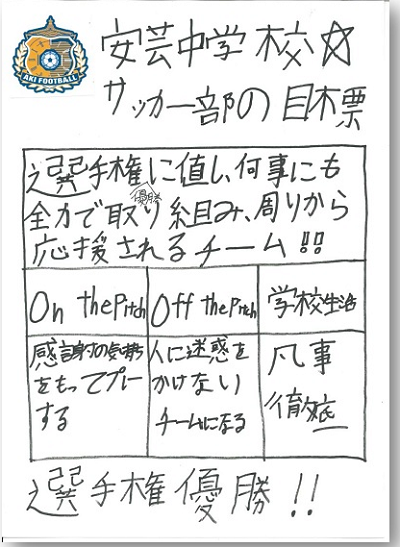 AKI FOOTBALL
安芸中学校☆
サッカー部の目標
選手権に値し、何事にも
優勝
全力で取り組み、周りから
応援されるチーム!!
On the Pitch
Off the Pitch
学校生活
感謝の気持
をもってプレー
する
人に迷惑を
かけない
チームになる
凡事
徹底
選手権優勝!!